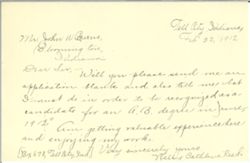 Tell City, Indiana,
Feb. 22, 1912
Mr. John W. Cravens,
Bloomington,
Indiana.
Dear Sir:
Will you please send me an
application blank and also tell me what
I must do in order to be recognized as a
candidate for an A.B. degree in June,
1912.
Am getting valuable experience here
and enjoying my work.
Very sincerely yours
(Box 69, Tell City, Ind.) Nellie